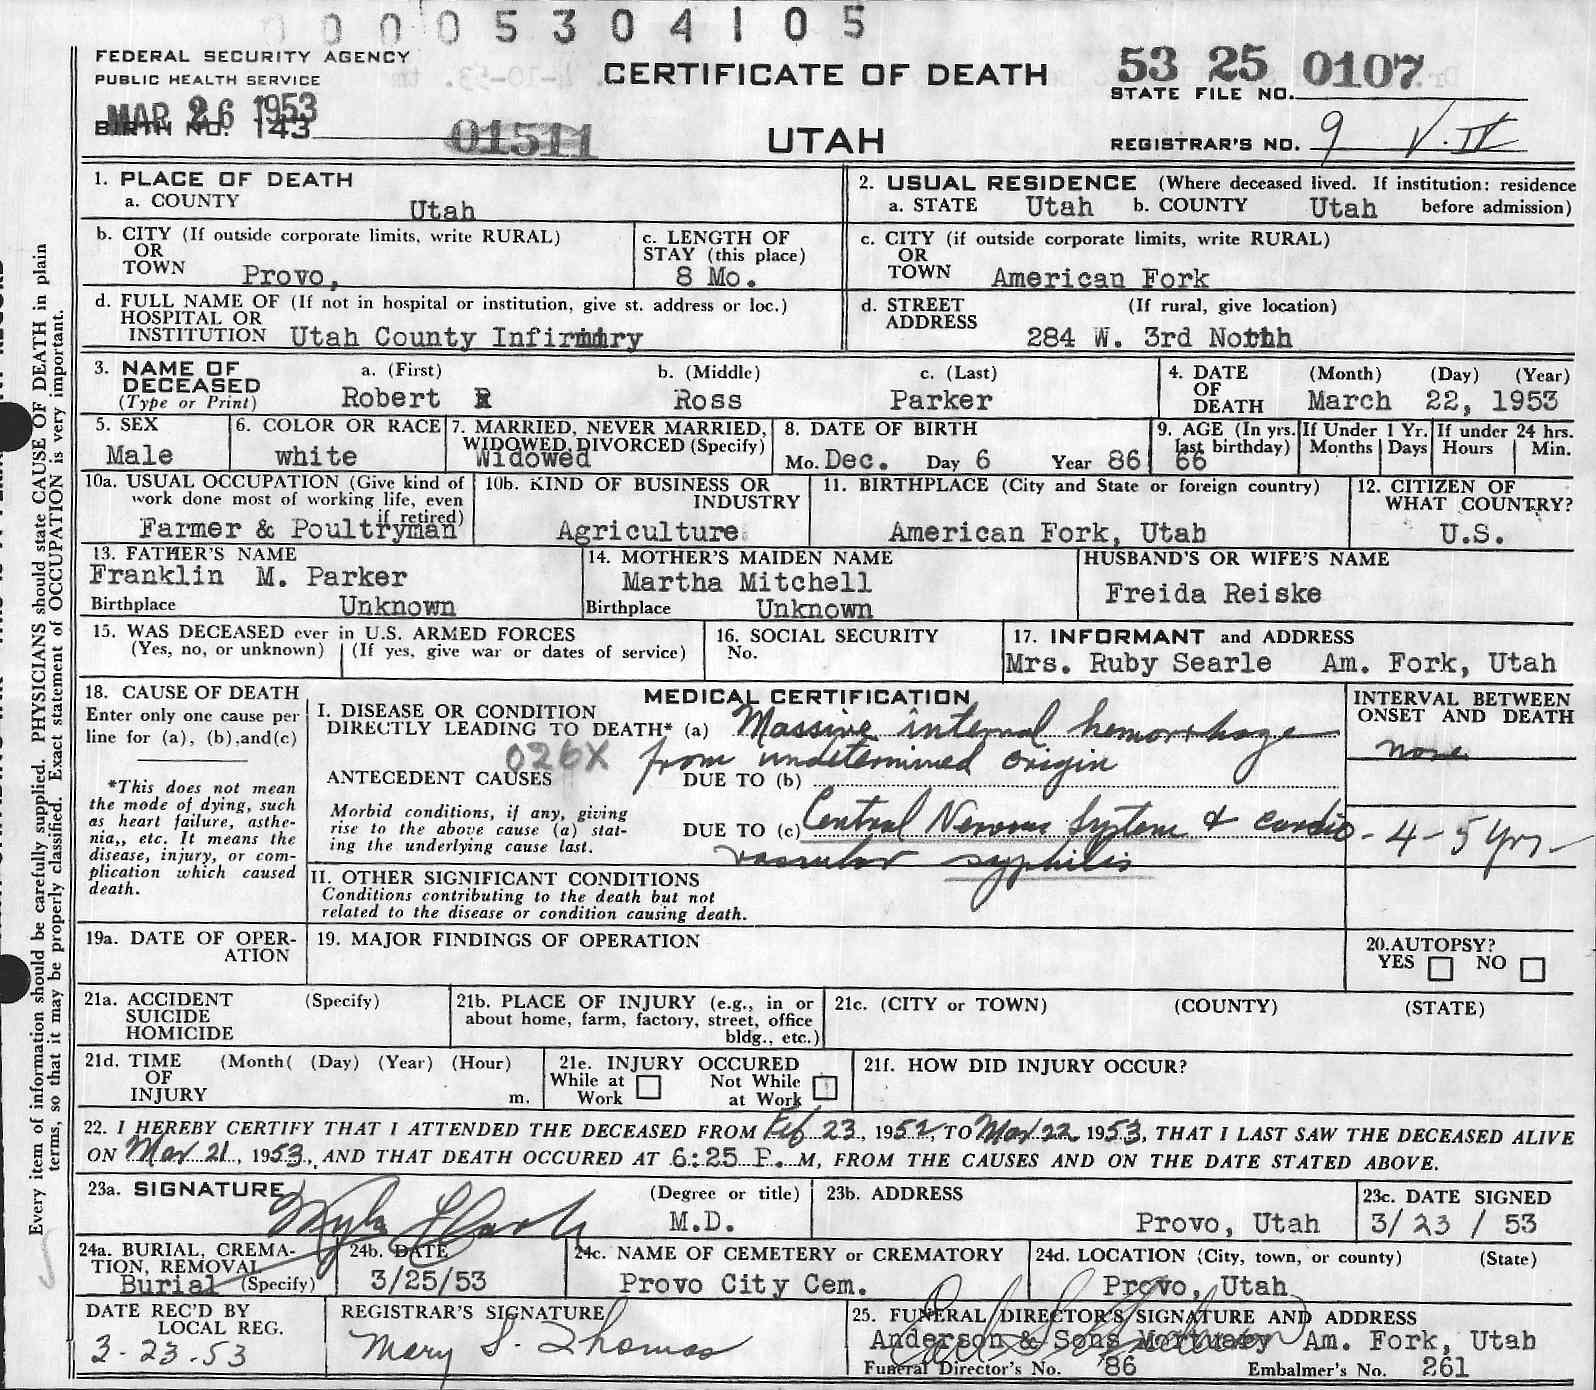 0 0 0 0 5 3 0 4 1 0 5
FEDERAL SECURITY AGENCY
PUBLIC HEALTH SERVICE
CERTIFICATE OF DEATH
53 25 0107
STATE FILE NO.
MAR 26 1953
BIRTH NO. 143
01511
UTAH
REGISTRAR'S NO. 9 V. IV
1. PLACE OF DEATH
a. COUNTY Utah
2. USUAL RESIDENCE (Where deceased lived. If institution: residence before admission)
a. STATE Utah b. COUNTY Utah
b. CITY (If outside corporate limits, write RURAL)
OR
TOWN Provo,
c. LENGTH OF
STAY (this place)
8 Mo.
c. CITY (if outside corporate limits, write RURAL)
OR
TOWN American Fork
d. FULL NAME OF (If not in hospital or institution, give st. address or loc.)
HOSPITAL OR
INSTITUTION Utah County
d. STREET (If rural, give location)
ADDRESS
284 W. 3rd North
3. NAME OF
DECEASED
(Type or Print)
a. (First) b. (Middle) c. (Last)
Robert R Ross Parker
4. DATE (Month) (Day) (Year)
OF
DEATH March 22, 1953
5. SEX
Male
6. COLOR OR RACE
white
7. MARRIED, NEVER MARRIED,
WIDOWED, DIVORCED (Specify)
Widowed
8. DATE OF BIRTH
Mo. Dec. Day 6 Year 86
9. AGE (In yrs.
last birthday)
66
If Under 1 Yr.
Months Days
If under 24 hrs.
Hours Min.
10a. USUAL OCCUPATION (Give kind of
work done most of working life, even
if retired)
Farmer & Poultryman
10b. KIND OF BUSINESS OR
INDUSTRY
Agriculture
11. BIRTHPLACE (City and State or foreign country)
American Fork, Utah
12. CITIZEN OF
WHAT COUNTRY?
U.S.
13. FATHER'S NAME
Franklin M. Parker
Birthplace Unknown
14. MOTHER'S MAIDEN NAME
Martha Mitchell
Birthplace Unknown
HUSBAND'S OR WIFE'S NAME
Freida Reiske
15. WAS DECEASED ever in U.S. ARMED FORCES
(Yes, no, or unknown) (If yes, give war or dates of service)
16. SOCIAL SECURITY
No.
17. INFORMANT and ADDRESS
Mrs. Ruby Searle Am. Fork, Utah
18. CAUSE OF DEATH
Enter only one cause per
line for (a), (b),and(c)
*This does not mean
the mode of dying, such
as heart failure, asthe-
nia,, etc. It means the
disease, injury, or com-
plication which caused
death.
MEDICAL CERTIFICATION
I. DISEASE OR CONDITION
DIRECTLY LEADING TO DEATH* (a) Massive internal hemorrhage
026X from undetermined origin
ANTECEDENT CAUSES DUE TO (b)
Morbid conditions, if any, giving
rise to the above cause (a) stat-
ing the underlying cause last.
DUE TO (c) Central Nervous System & cardio
vascular syphilis
INTERVAL BETWEEN
ONSET AND DEATH
none
- 4 - 5 yrs -
II. OTHER SIGNIFICANT CONDITIONS
Conditions contributing to the death but not
related to the disease or condition causing death.
19a. DATE OF OPER-
ATION
19. MAJOR FINDINGS OF OPERATION
20.AUTOPSY?
YES NO
21a. ACCIDENT (Specify)
SUICIDE
HOMICIDE
21b. PLACE OF INJURY (e.g., in or
about home, farm, factory, street, office
bldg., etc.)
21c. (CITY or TOWN) (COUNTY) (STATE)
21d. TIME (Month( (Day) (Year) (Hour)
OF
INJURY m.
21e. INJURY OCCURED
While at Not While
Work at Work
21f. HOW DID INJURY OCCUR?
22. I HEREBY CERTIFY THAT I ATTENDED THE DECEASED FROM Feb 23, 1952, TO Mar 22, 1953, THAT I LAST SAW THE DECEASED ALIVE
ON Mar 21, 1953, AND THAT DEATH OCCURED AT 6:25 P. M, FROM THE CAUSES AND ON THE DATE STATED ABOVE.
23a. SIGNATURE (Degree or title)
M.D.
23b. ADDRESS
Provo, Utah
23c. DATE SIGNED
3/ 23 / 53
24a. BURIAL, CREMA-
TION, REMOVAL
Burial (Specify)
24b. DATE
3/25/53
24c. NAME OF CEMETERY or CREMATORY
Provo City Cem.
24d. LOCATION (City, town, or county) (State)
Provo, Utah
DATE REC'D BY
LOCAL REG.
3-23-53
REGISTRAR'S SIGNATURE
Mary S. Thomas
25. FUNERAL DIRECTOR'S SIGNATURE AND ADDRESS
Anderson & Sons Mortuary Am. Fork, Utah
Funeral Director's No. 86 Embalmer's No. 261
Every item of information should be carefully supplied. PHYSICIANS should state CAUSE OF DEATH in plain
terms, so that it may be properly classified. Exact statement of OCCUPATION is very important.